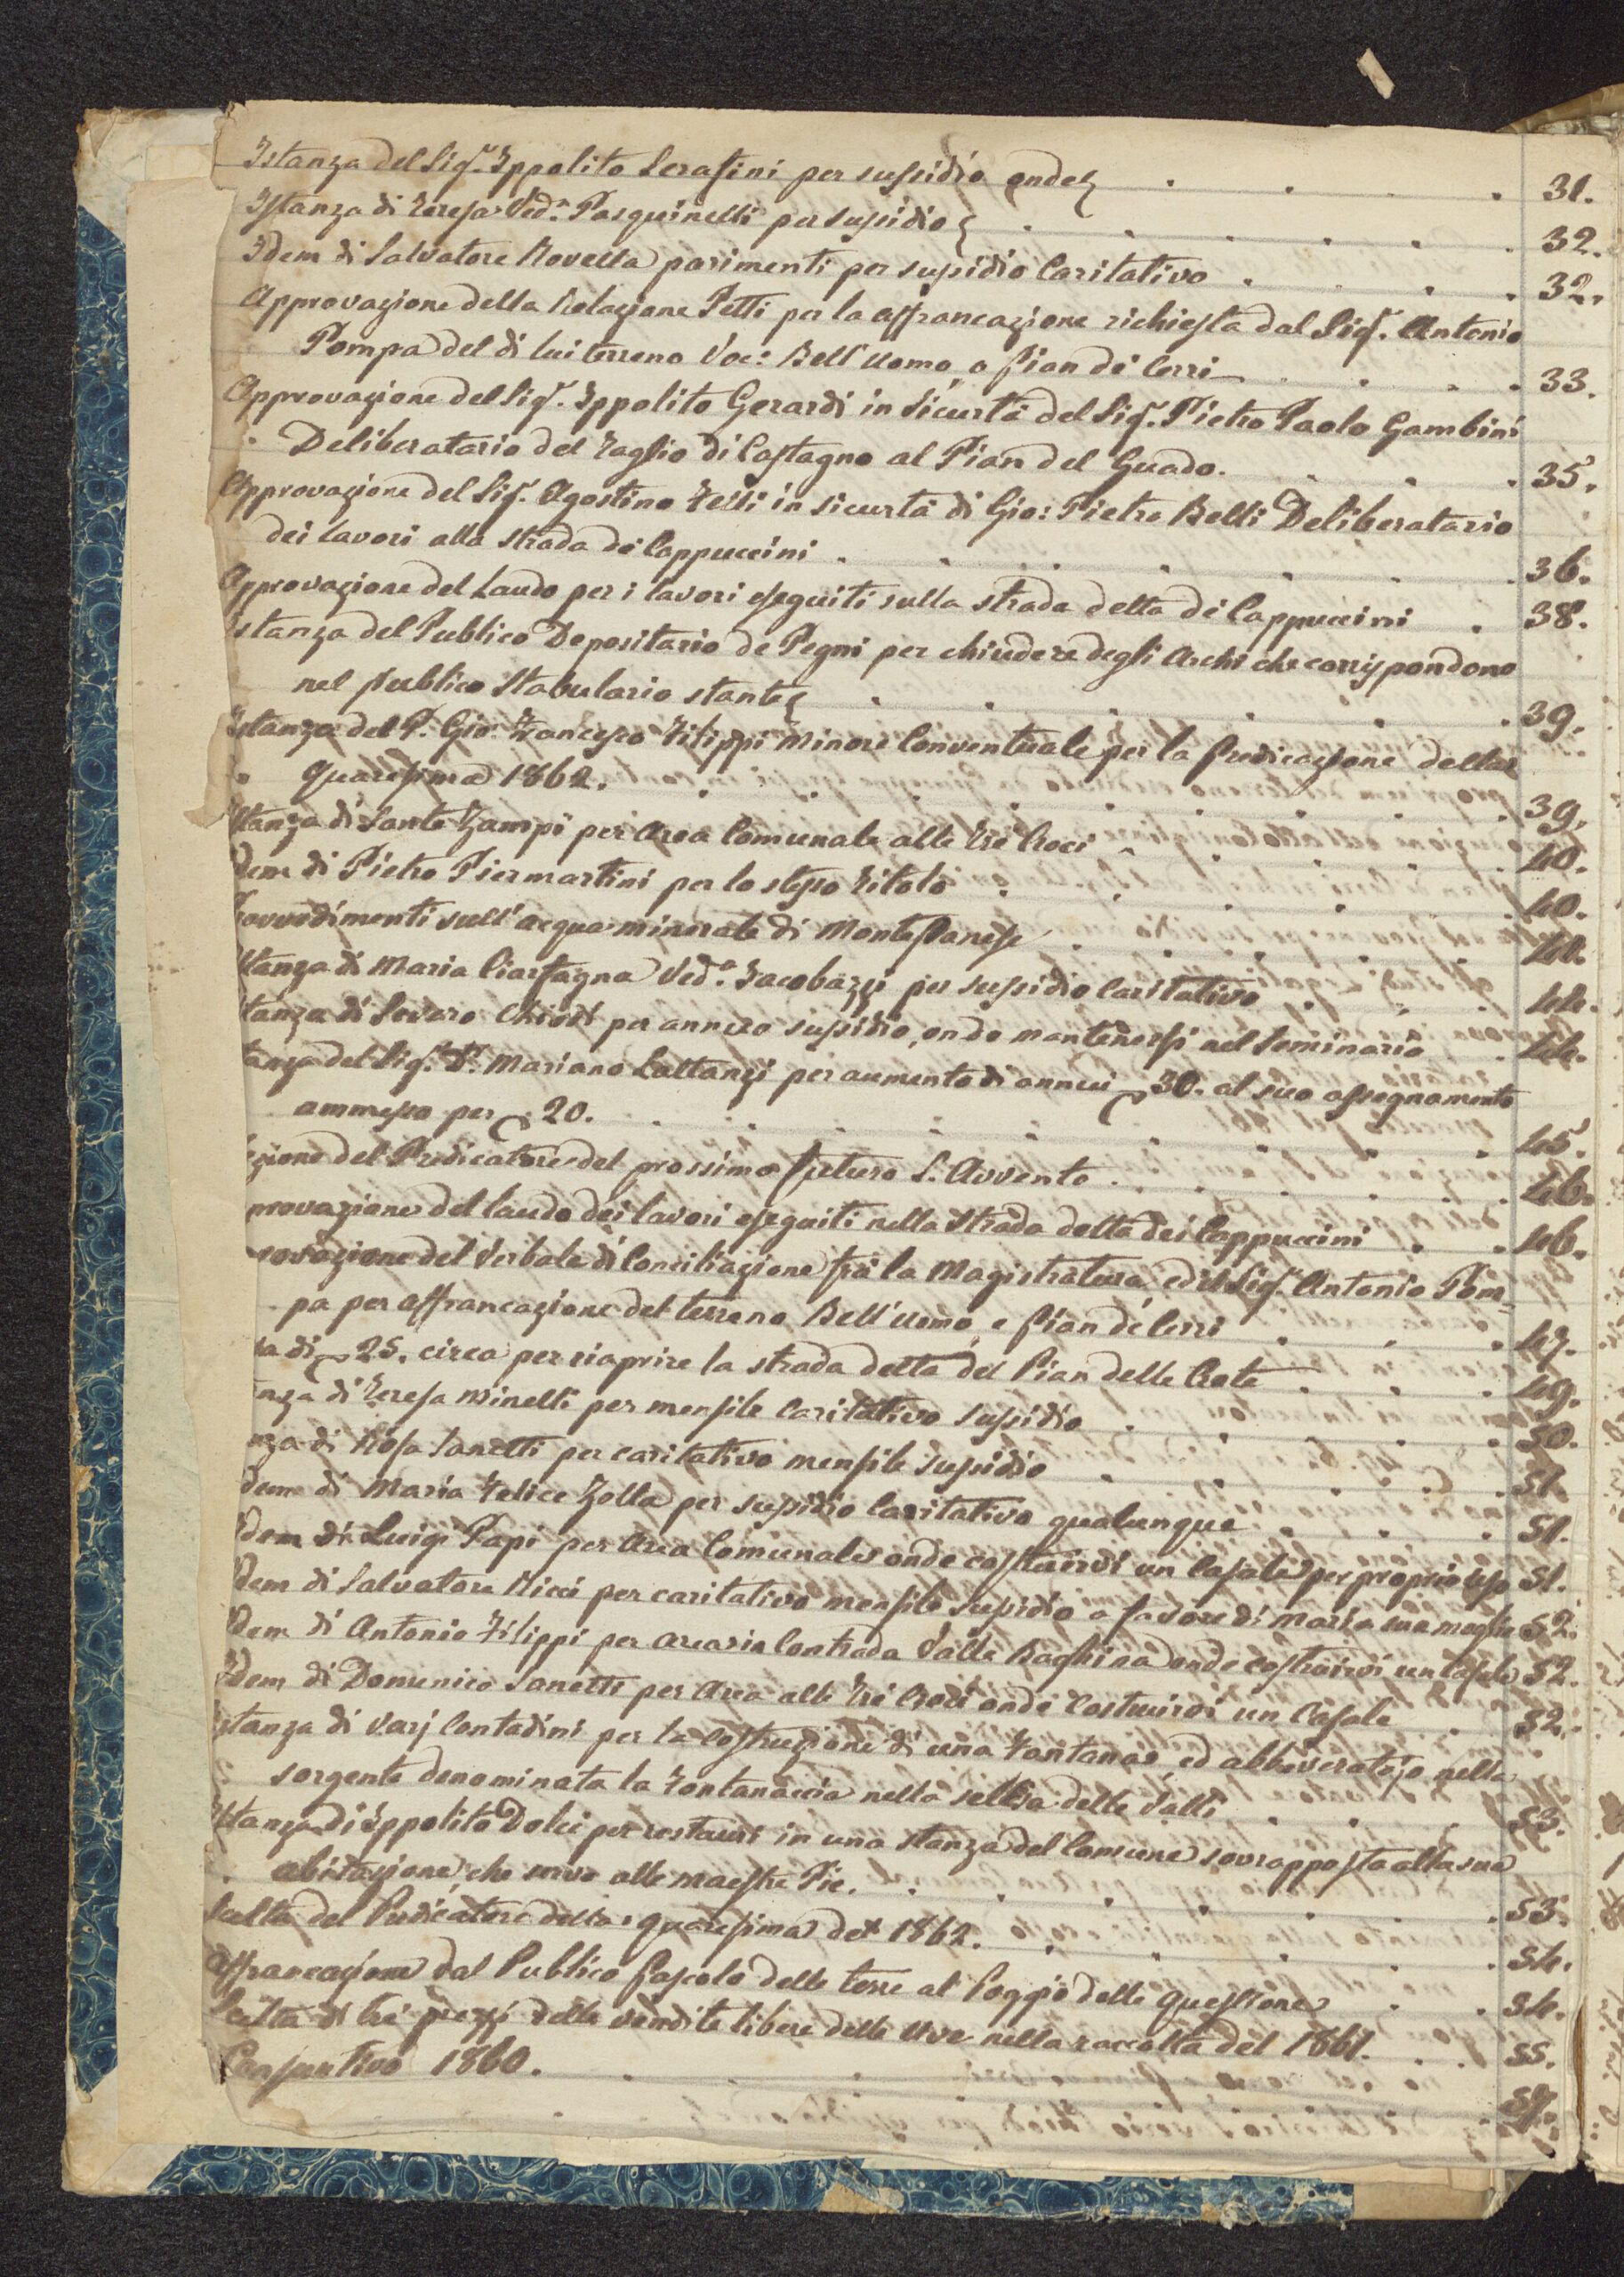 Istanza del Sig.r Ippolito Serafini per sussidio onde . . . . 31.
Istanza di Teresa Ved.a Pasquinelli per sussidio . . . . . 32.
Idem di Salvatore Rovella parimenti per sussidio Caritativo . . . 32.
Approvazione della Relazione Petti per la affrancazione richiesta dal Sig.r Antonio
Pompa del di lui terreno Voc: Bell'Uomo, o pian de Cerri . . . 33.
Approvazione del Sig.r Ippolito Gerardi in Sicurtà del Sig.r Pietro Paolo Gambini
Deliberatario del Taglio di Castagno al Pian del Guado. . . . 35.
Approvazione del Sig.r Agostino Felli in sicurtà di Gio: Pietro Belli Deliberatario
dei lavori alla strada de Cappuccini . . . . . . 36.
Approvazione del Laudo per i lavori eseguiti sulla strada detta de Cappuccini . 38.
Istanza del Publico Depositario de Pegni per chiudere degli Archi che corrispondono
nel publico Stabulario stante . . . . . . 39.
Istanza del P. Gio: Francesco Filippi Minore Conventuale per la predicazione della
quaresima 1862. . . . . . . . 39.
Istanza di Sante Zampi per area Comunale alle Tre Croci . . . 40.
dem di Pietro Piermartini per lo stesso titolo . . . . 40.
Provvedimenti sull'acqua minerale di Montefanese . . . . 41.
stanza di Maria Ciarfagna Ved.a Jacobazzi per sussidio caritativo . . 44.
tanza di Severo Chiodi per annuo sussidio, onde mantenersi nel Seminario . 44.
tanza del Sig.r D.r Mariano Lattanzi per aumento di annui 30. al suo assegnamento
ammesso per 20. . . . . . . . 45.
zione del Predicatore del prossimo futuro S. Avvento . . . . 46.
provazione del laudo dei lavori eseguiti nella strada detta dei Cappuccini . . 46.
rovazione del Verbale di Conciliazione frà la Magistratura ed il Sig.r Antonio Pom-
pa per affrancazione del terreno Bell'Uomo, e pian de Cerri . . . 47.
a di 25. circa per riaprire la strada detta del Pian delle Crete . . . 49.
nza di Teresa Minelli per mensile caritativo sussidio . . . . 50.
nza di Rosa Sanetti per caritativo mensile sussidio . . . . 51.
dem di Maria Felice Zolla per sussidio caritativo qualunque . . . 51.
dem di Luigi Papi per area Comunale onde costruirsi un Casale per proprio uso 51.
dem di Salvatore Ricci per caritativo mensile sussidio a favore di Maria sua moglie 52.
dem di Antonio Filippi per area in Contrada Valle Raghina onde costruirsi un Casale 52.
Idem di Domenico Sanetti per area alle Tre Croci onde costruirsi un Casale . 52.
Istanza di varj Contadini per la costruzione di una Fontana, ed abbeveratojo nella
sorgente denominata la Fontanaccia nella selva delle Valli . . . 53.
Istanza di Ippolito Dolci per restauri in una stanza del Comune sovrapposta alla sua
abitazione, che serve alle maestre Pie. . . . . . . 53.
Scelta del Predicatore della quaresima del 1862. . . . . . 54.
Affrancazione dal Publico pascolo delle terre al Poggio delle Questione . . 54.
Scelta di tre prezzi delle vendite libere delle Uve nella raccolta del 1861. . . 55.
Consuntivo 1860. . . . . . . . 57.